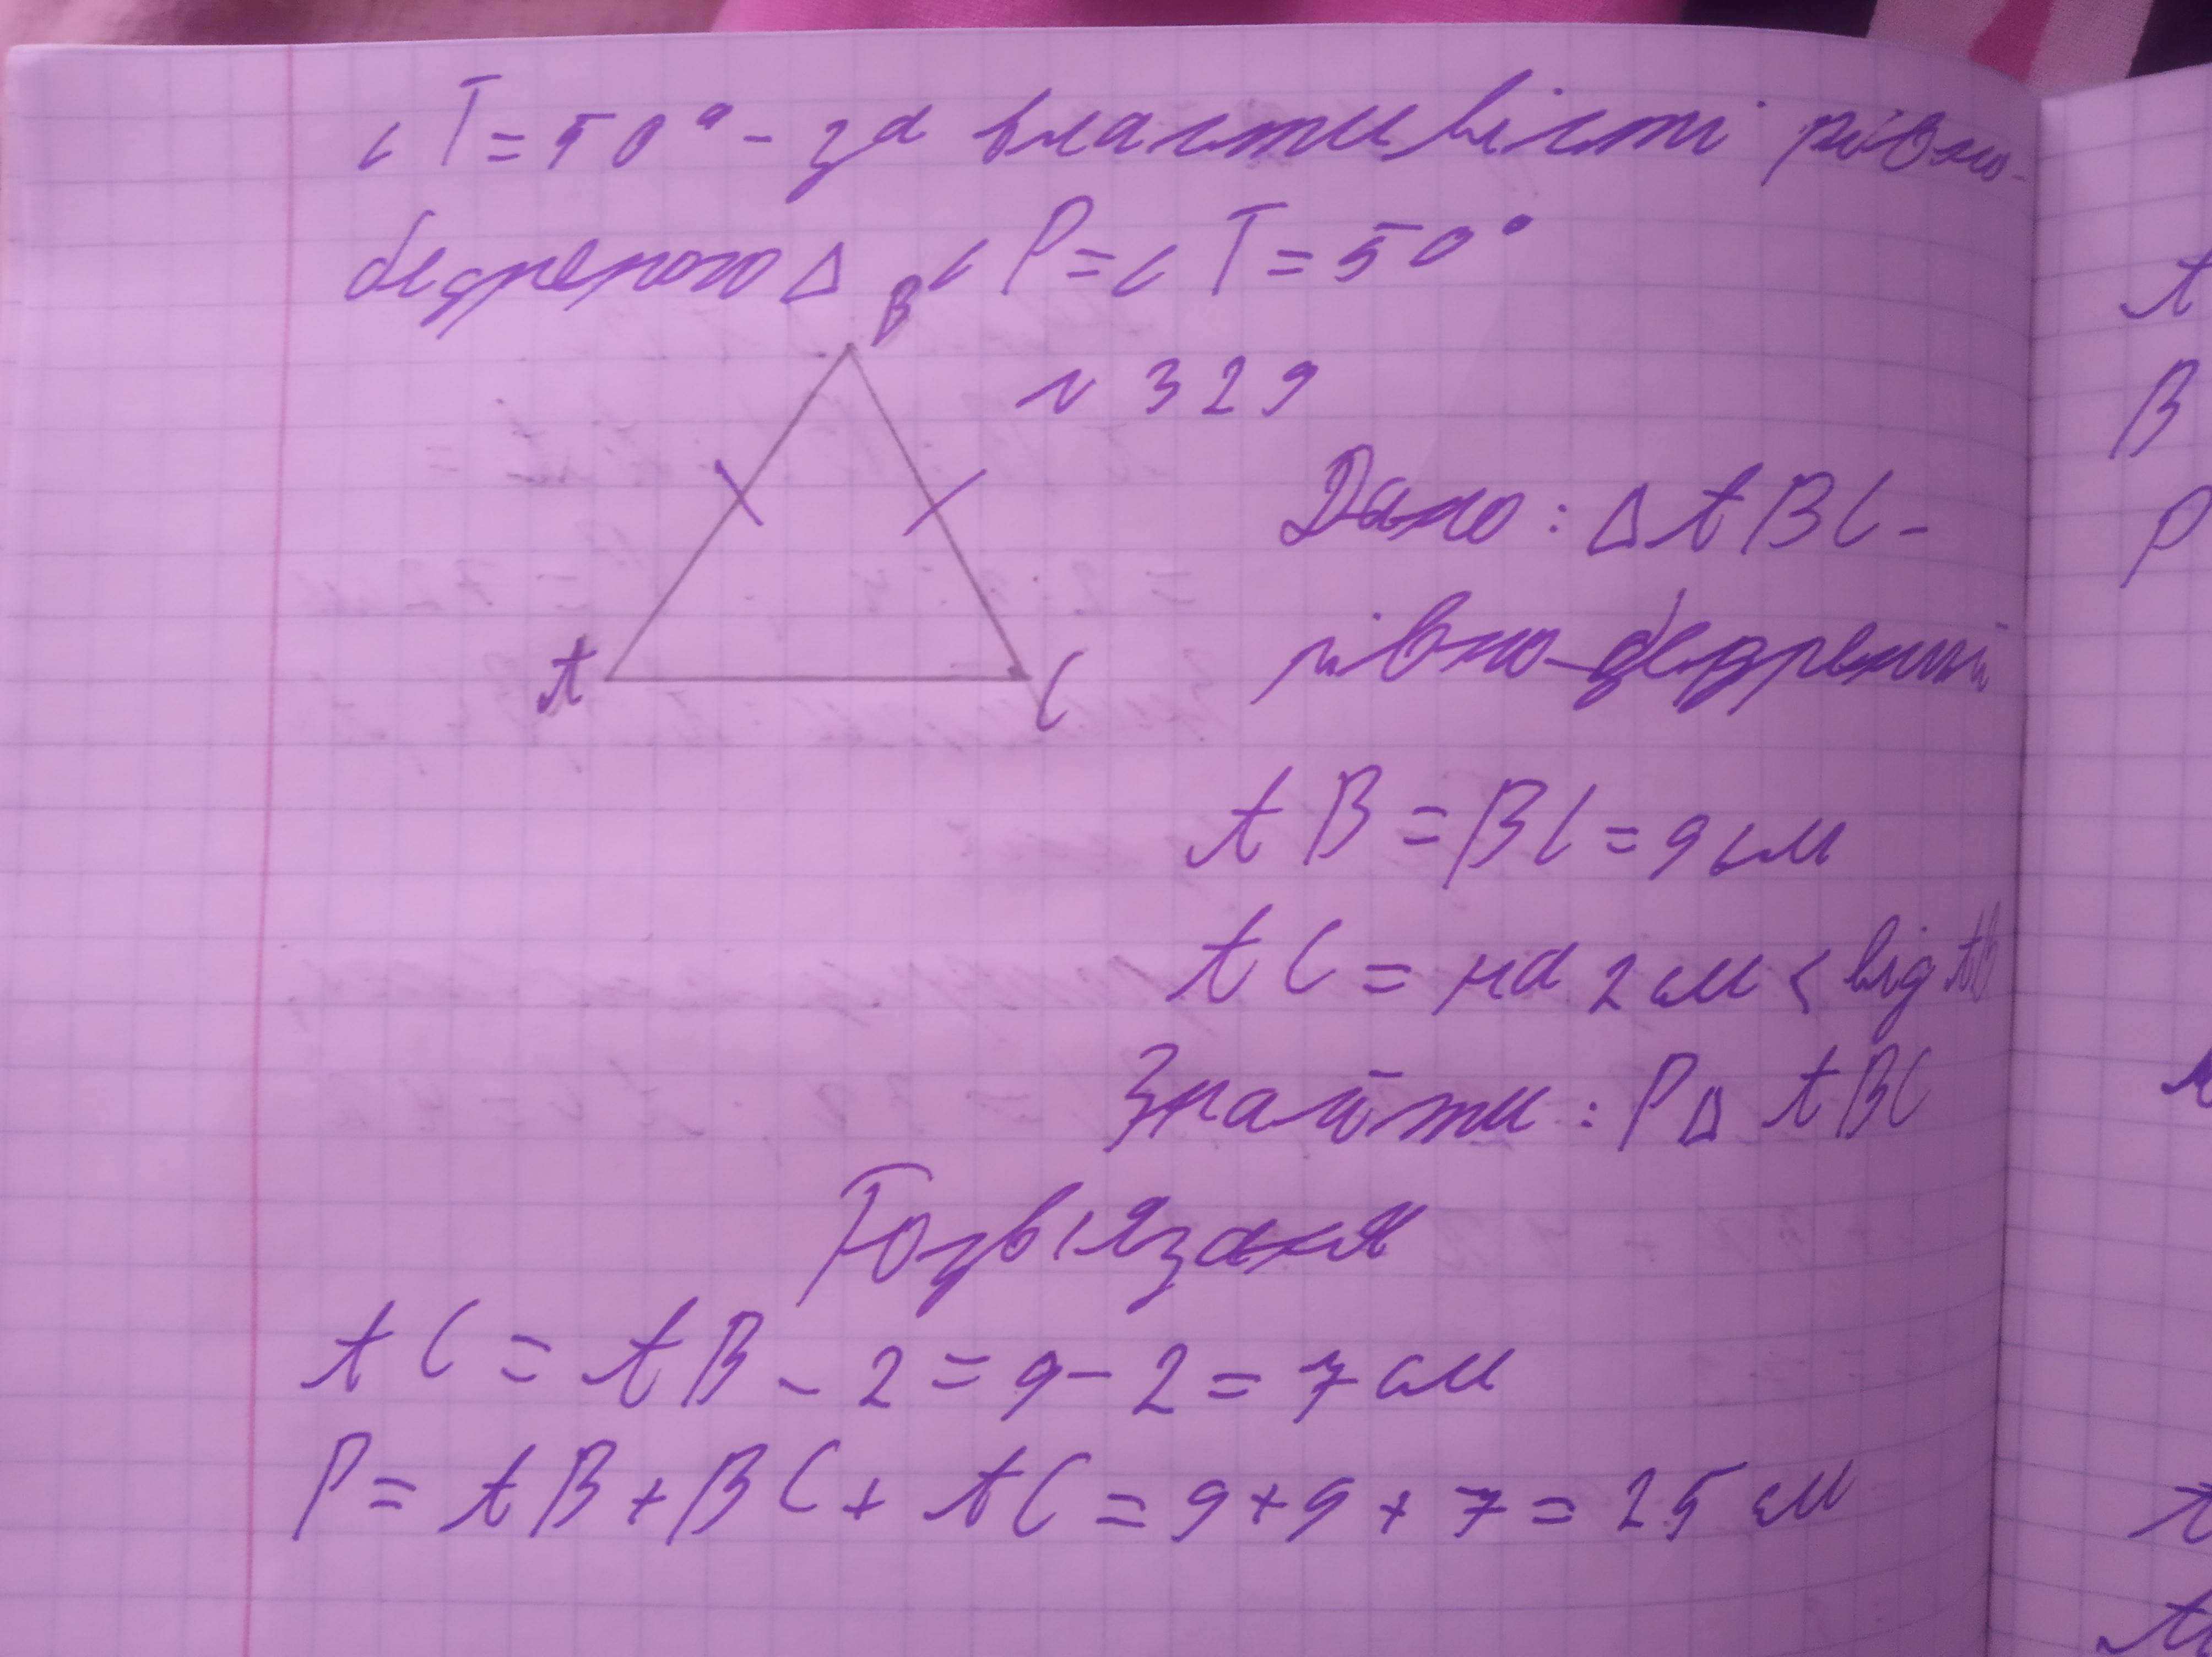 ∠T = 50° - за властивісті рівно-
бедреного Δ ∠P = ∠T = 50°
B
N 329
Дано : Δ ABC -
рівно-бедрений
A
C
AB = BC = 9 см
AC = на 2 см < від AB
Знайти : PΔ ABC
Розв'язання
AC = AB - 2 = 9 - 2 = 7 см
P = AB + BC + AC = 9 + 9 + 7 = 25 см
A
B
P